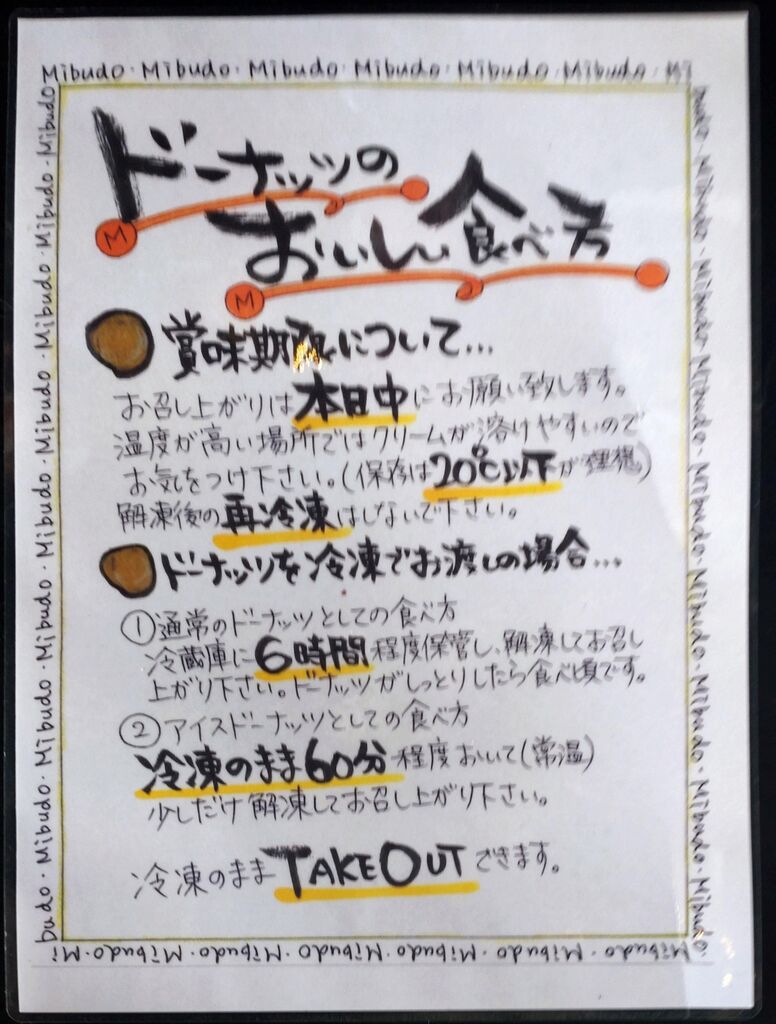 Mibudo・Mibudo・Mibudo・Mibudo・Mibudo・Mibudo・Mi
budo・Mibudo・Mibudo・Mibudo・Mibudo・Mibudo・Mibudo・Mibudo・Mibudo
ドーナッツの
M
おいしい食べ方
M
賞味期限について…
お召し上がりは本日中にお願い致します。
温度が高い場所ではクリームが溶けやすいので
お気をつけ下さい。(保存は20℃以下が理想)
解凍後の再冷凍はしないで下さい。
ドーナッツを冷凍でお渡しの場合…
①通常のドーナッツとしての食べ方
冷蔵庫に6時間程度保管し、解凍してお召し
上がり下さい。ドーナッツがしっとりしたら食べ頃です。
②アイスドーナッツとしての食べ方
冷凍のまま60分程度おいて(常温)
少しだけ解凍してお召し上がり下さい。
冷凍のままTAKEOUTできます。
budo・Mibudo・Mibudo・Mibudo・Mibudo・Mibudo・Mibudo・Mibudo・Mibudo
Mibudo・Mibudo・Mibudo・Mibudo・Mibudo・Mibudo・Mi